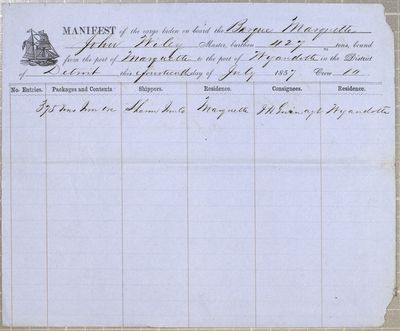 MANIFEST of the cargo laden on board the Barque Marquette
John Wiley Master, burthen 427 tons, bound
from the port of Marquette to the port of Wyandotte in the District
of Detroit this fourteenth day of July 1857 Crew 10
No. Entries. Packages and Contents Shippers. Residence. Consignees. Residence.
375 Tons Iron Ore Marquette Wyandotte